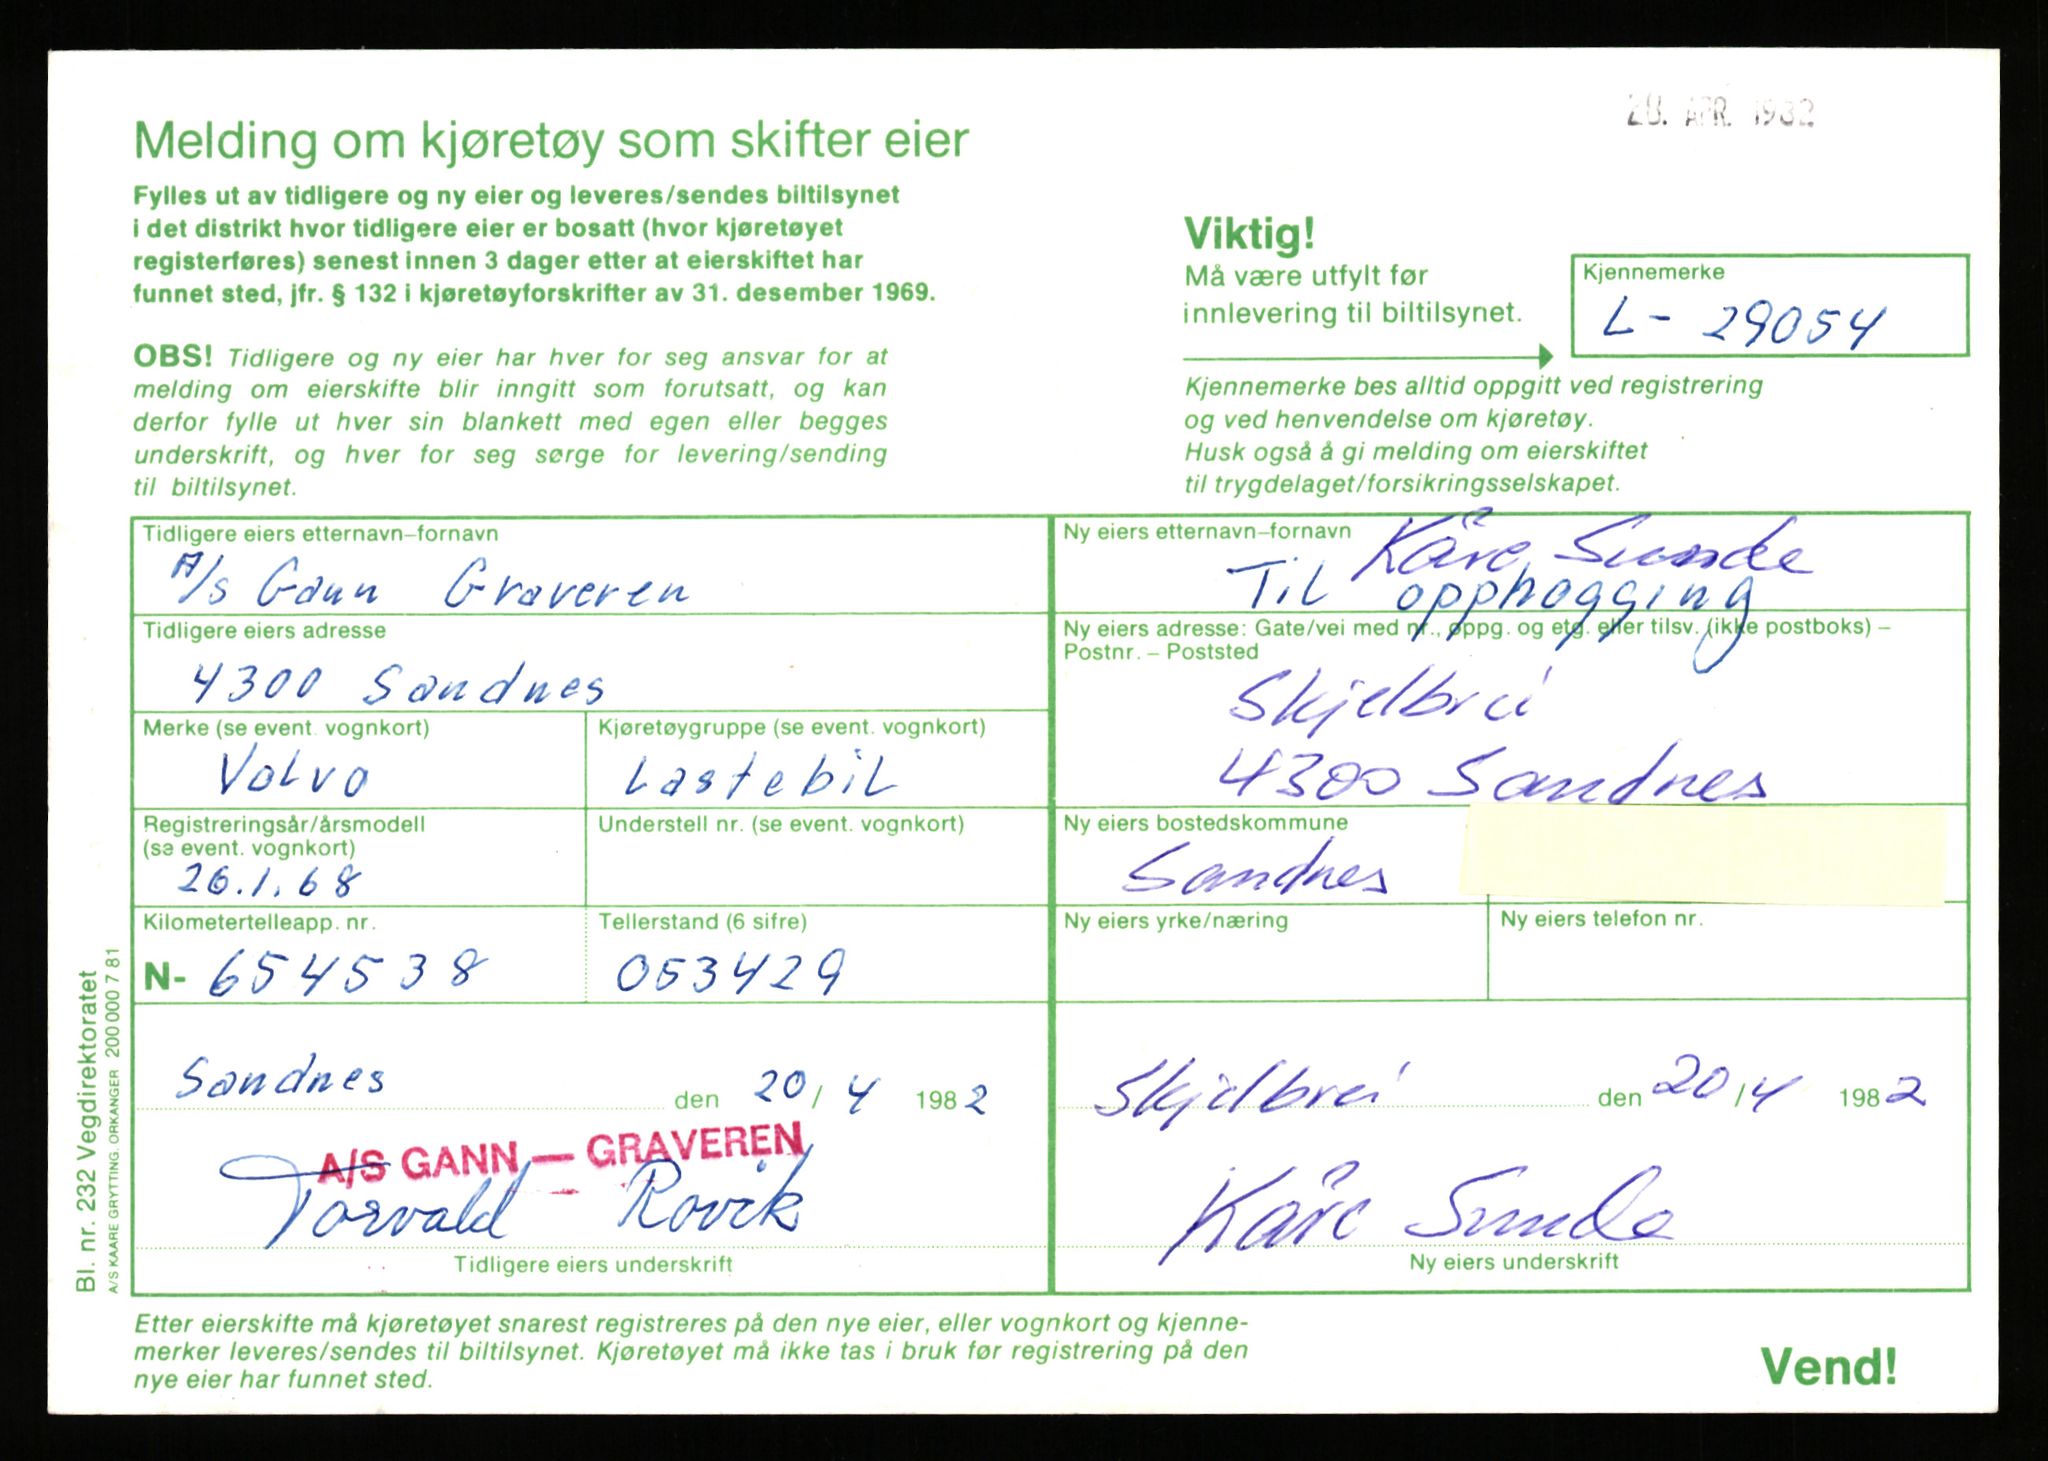 28. APR. 1982
Melding om kjøretøy som skifter eier
Fylles ut av tidligere og ny eier og leveres/sendes biltilsynet
i det distrikt hvor tidligere eier er bosatt (hvor kjøretøyet
registerføres) senest innen 3 dager etter at eierskiftet har
funnet sted, jfr. § 132 i kjøretøyforskrifter av 31. desember 1969.
OBS! Tidligere og ny eier har hver for seg ansvar for at
melding om eierskifte blir inngitt som forutsatt, og kan
derfor fylle ut hver sin blankett med egen eller begges
underskrift, og hver for seg sørge for levering/sending
til biltilsynet.
Viktig!
Må være utfylt før
innlevering til biltilsynet.
Kjennemerke
L- 29054
Kjennemerke bes alltid oppgitt ved registrering
og ved henvendelse om kjøretøy.
Husk også å gi melding om eierskiftet
til trygdelaget/forsikringsselskapet.
Tidligere eiers etternavn–fornavn
A/S Gann Graveren
Tidligere eiers adresse
4300 Sandnes
Merke (se event. vognkort)
Volvo
Kjøretøygruppe (se event. vognkort)
Lastebil
Registreringsår/årsmodell
(se event. vognkort)
26.1.68
Understell nr. (se event. vognkort)
Kilometertelleapp. nr.
N- 654538
Tellerstand (6 sifre)
053429
Sandnes den 20/4 1982
A/S GANN — GRAVEREN
Torvald Rovik
Tidligere eiers underskrift
Ny eiers etternavn–fornavn
Kåre Sunde
Til opphogging
Ny eiers adresse: Gate/vei med nr., oppg. og etg. eller tilsv. (ikke postboks) –
Postnr. – Poststed
Skjelbrei
4300 Sandnes
Ny eiers bostedskommune
Sandnes
Ny eiers yrke/næring
Ny eiers telefon nr.
Skjelbrei den 20/4 1982
Kåre Sunde
Ny eiers underskrift
Etter eierskifte må kjøretøyet snarest registreres på den nye eier, eller vognkort og kjenne-
merker leveres/sendes til biltilsynet. Kjøretøyet må ikke tas i bruk før registrering på den
nye eier har funnet sted.
Vend!
Bl. nr. 232 Vegdirektoratet
A/S KAARE GRYTTING. ORKANGER 200 000 7 81